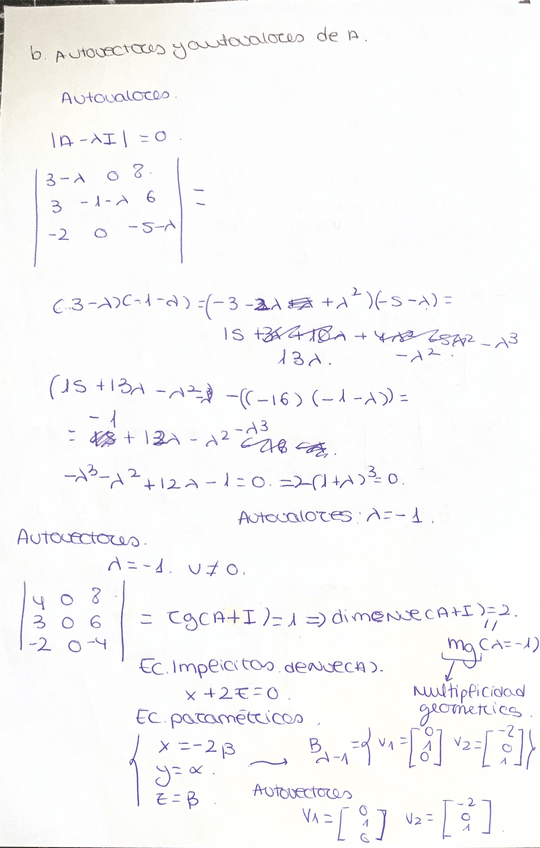 b. Autovectores y autovalores de A.
Autovalores.
|A-λI| = 0.
| 3-λ 0 8 |
| 3 -1-λ 6 | =
| -2 0 -5-λ |
(3-λ)(-1-λ) = (-3-2λ + λ²)(-5-λ) =
15 + 13λ - λ² - λ³
(15 + 13λ - λ² - ((-16)(-1-λ)) =
= -1 + 12λ - λ² - λ³
-λ³ - λ² + 12λ - 1 = 0. = 2(1+λ)³ = 0.
Autovalores: λ = -1.
Autovectores.
λ = -1. v ≠ 0.
| 4 0 8 |
| 3 0 6 | = rg(A+I) = 1 => dim nuc(A+I) = 2.
| -2 0 -4 |
mg(λ=-1)
Multiplicidad
geometrica.
Ec. Implicitas de Nuc(A).
x + 2z = 0.
Ec. paramétricas.
x = -2β
y = α.
z = β
B λ-1 = { v1 = [0 1 0] v2 = [-2 0 1] }
Autovectores
v1 = [0 1 0] v2 = [-2 0 1].